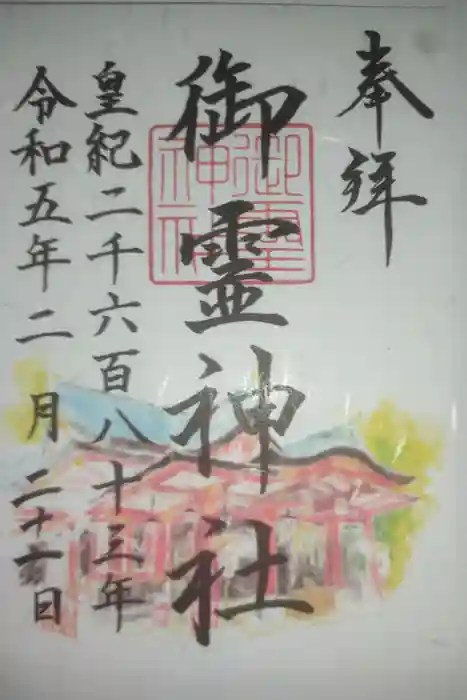 奉拝
御靈神社
御靈神社
皇紀二千六百八十三年
令和五年二月二十六日